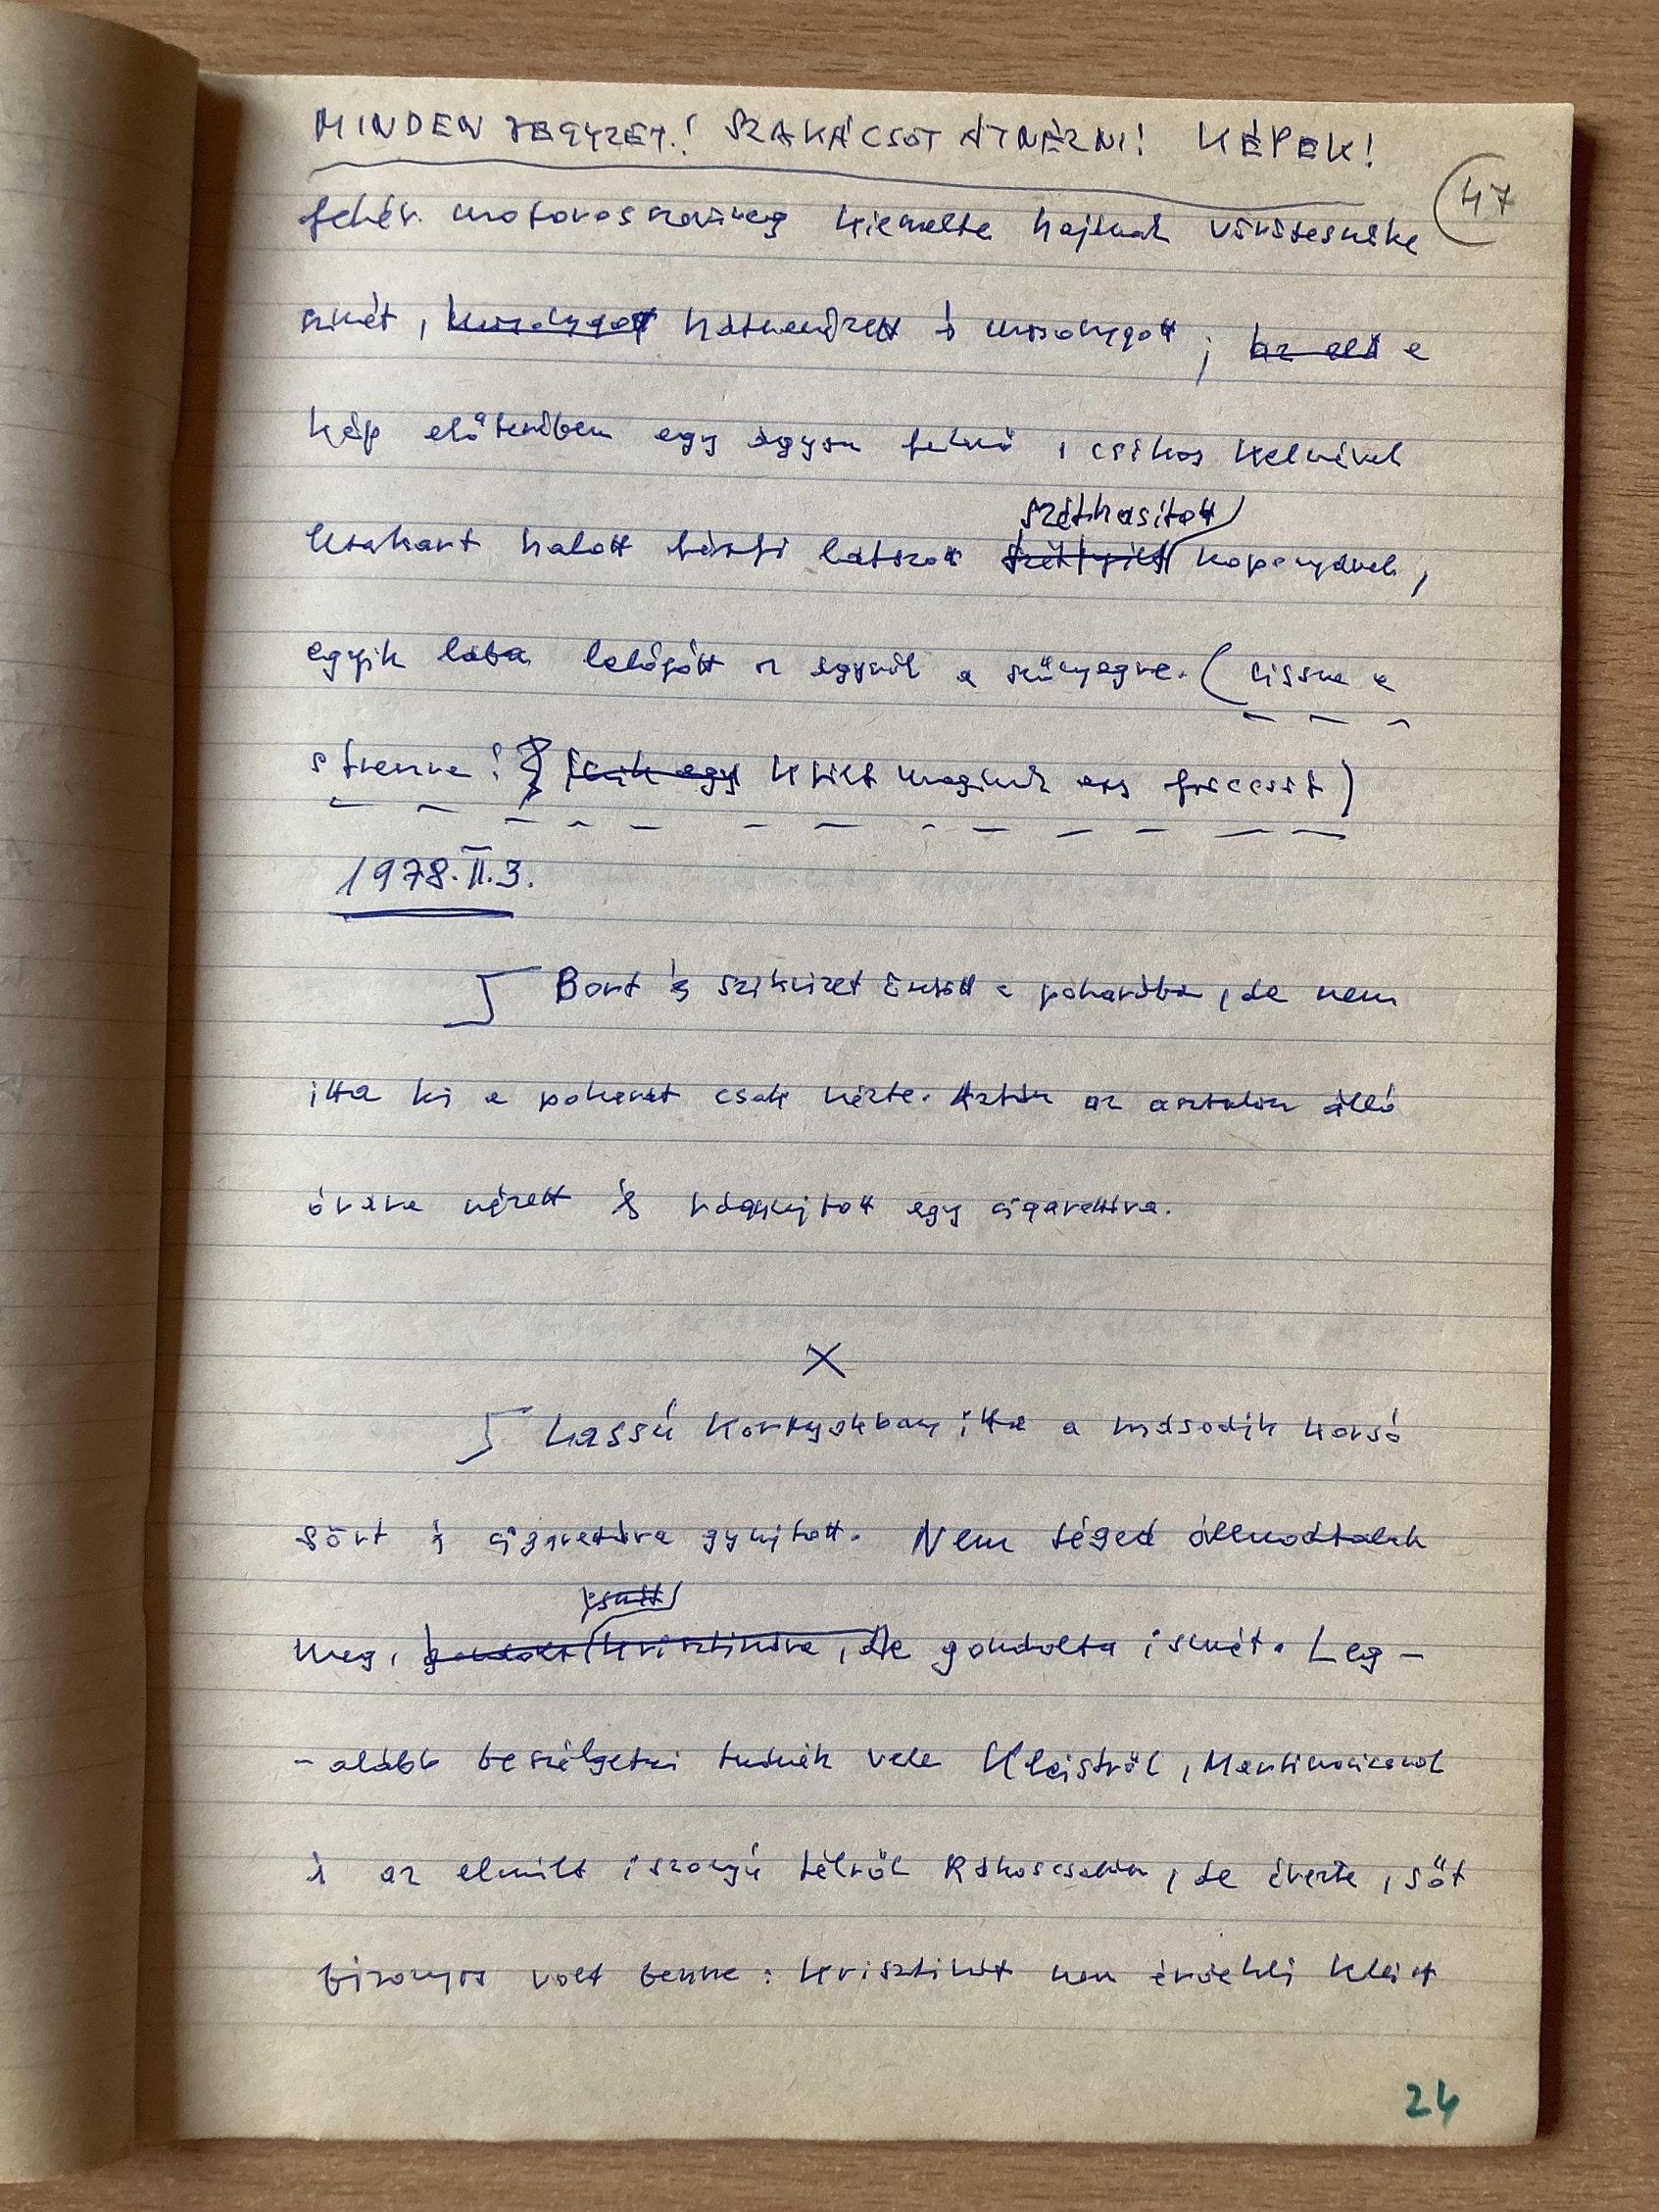 MINDEN JEGYZET! SZAKÁCSOT ÁTNÉZNI! KÉPEK!
47
fehér motorosszemüveg kiemelte hajának vörösesszőke
színét, mosolygott hátranézett és mosolygott; az elő a
kép előterében egy ágyon fekvő, csíkos kelmével
letakart halott férfi látszott
széthasított
koponyával,
egyik lába lelógott az ágyról a szőnyegre. (vissza a
strandra! csak egy kitilt magának egy fröccsöt)
1978. II. 3.
Bort és szikvizet öntött a pohárába, de nem
itta ki a poharat csak nézte. Aztán az asztalon álló
órára nézett és rágyújtott egy cigarettára.
X
Lassú kortyokban itta a második korsó
sört és cigarettára gyújtott. Nem téged álmodtalak
ismét
meg, gondolt Krisztinára, de gondolta ismét. Leg-
-alább beszélgetni tudnék vele Kleistről,
és az elmúlt iszonyú télről Rákoscsabán, de érezte, sőt
bizonyos volt benne: Krisztinát nem érdekli Kleist
24